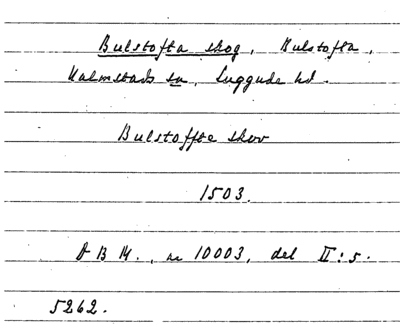 Bulstofta skog, Bulstofta,
Halmstads sn, Luggude hd.
Bulstoffte skov
1503.
D B M., nr 10003, del II:5.
5262.